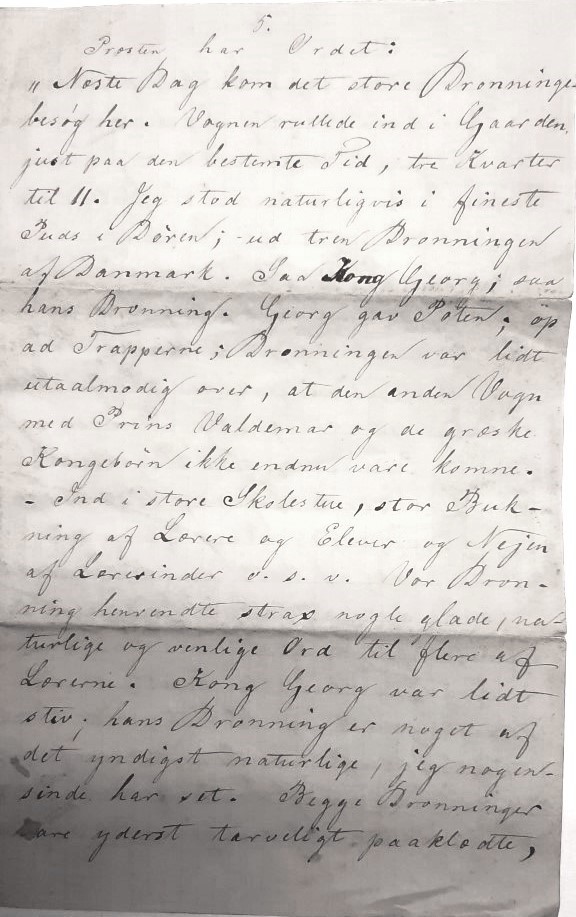 5.
Præsten har Ordet:
„Næste Dag kom det store Dronninge-
besøg her. Vognen rullede ind i Gaarden,
just paa den bestemte Tid, tre Kvarter
til 11. Jeg stod naturligvis i fineste
Puds i Døren; - ud tren Dronningen
af Danmark. Saa Kong Georg; saa
hans Dronning. Georg gav Poten; op
ad Trapperne; Dronningen var lidt
utaalmodig over, at den anden Vogn
med Prins Valdemar og de græske
Kongebörn ikke endnu vare komne.
- Ind i store Skolestue, stor Buk-
ning af Lærere og Elever og Nejen
af Lærerinder o. s. v. Vor Dron-
ning henvendte strax nogle glade, na-
turlige og venlige Ord til flere af
Lærerne. Kong Georg var lidt
stiv; hans Dronning er noget af
det yndigst naturlige, jeg nogen-
sinde har set. Begge Dronninger
vare yderst tarveligt paaklædte,